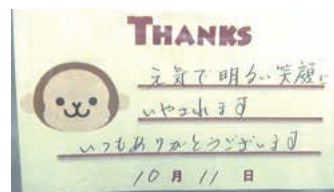 THANKS
元気で明るい笑顔に
いやされます
いつもありがとうございます
10月11日